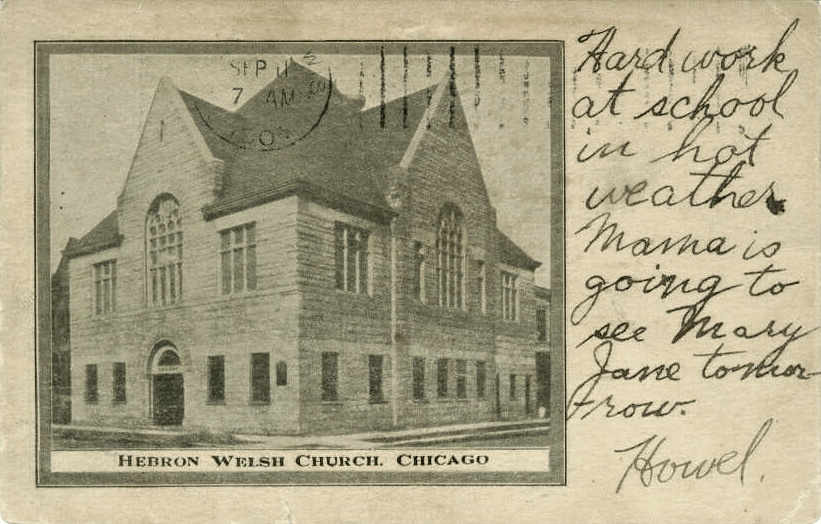 SEP 11
7 AM
Hard work
at school
in hot
weather
Mama is
going to
see Mary
Jane tomor-
row.
Howel.
HEBRON WELSH CHURCH. CHICAGO